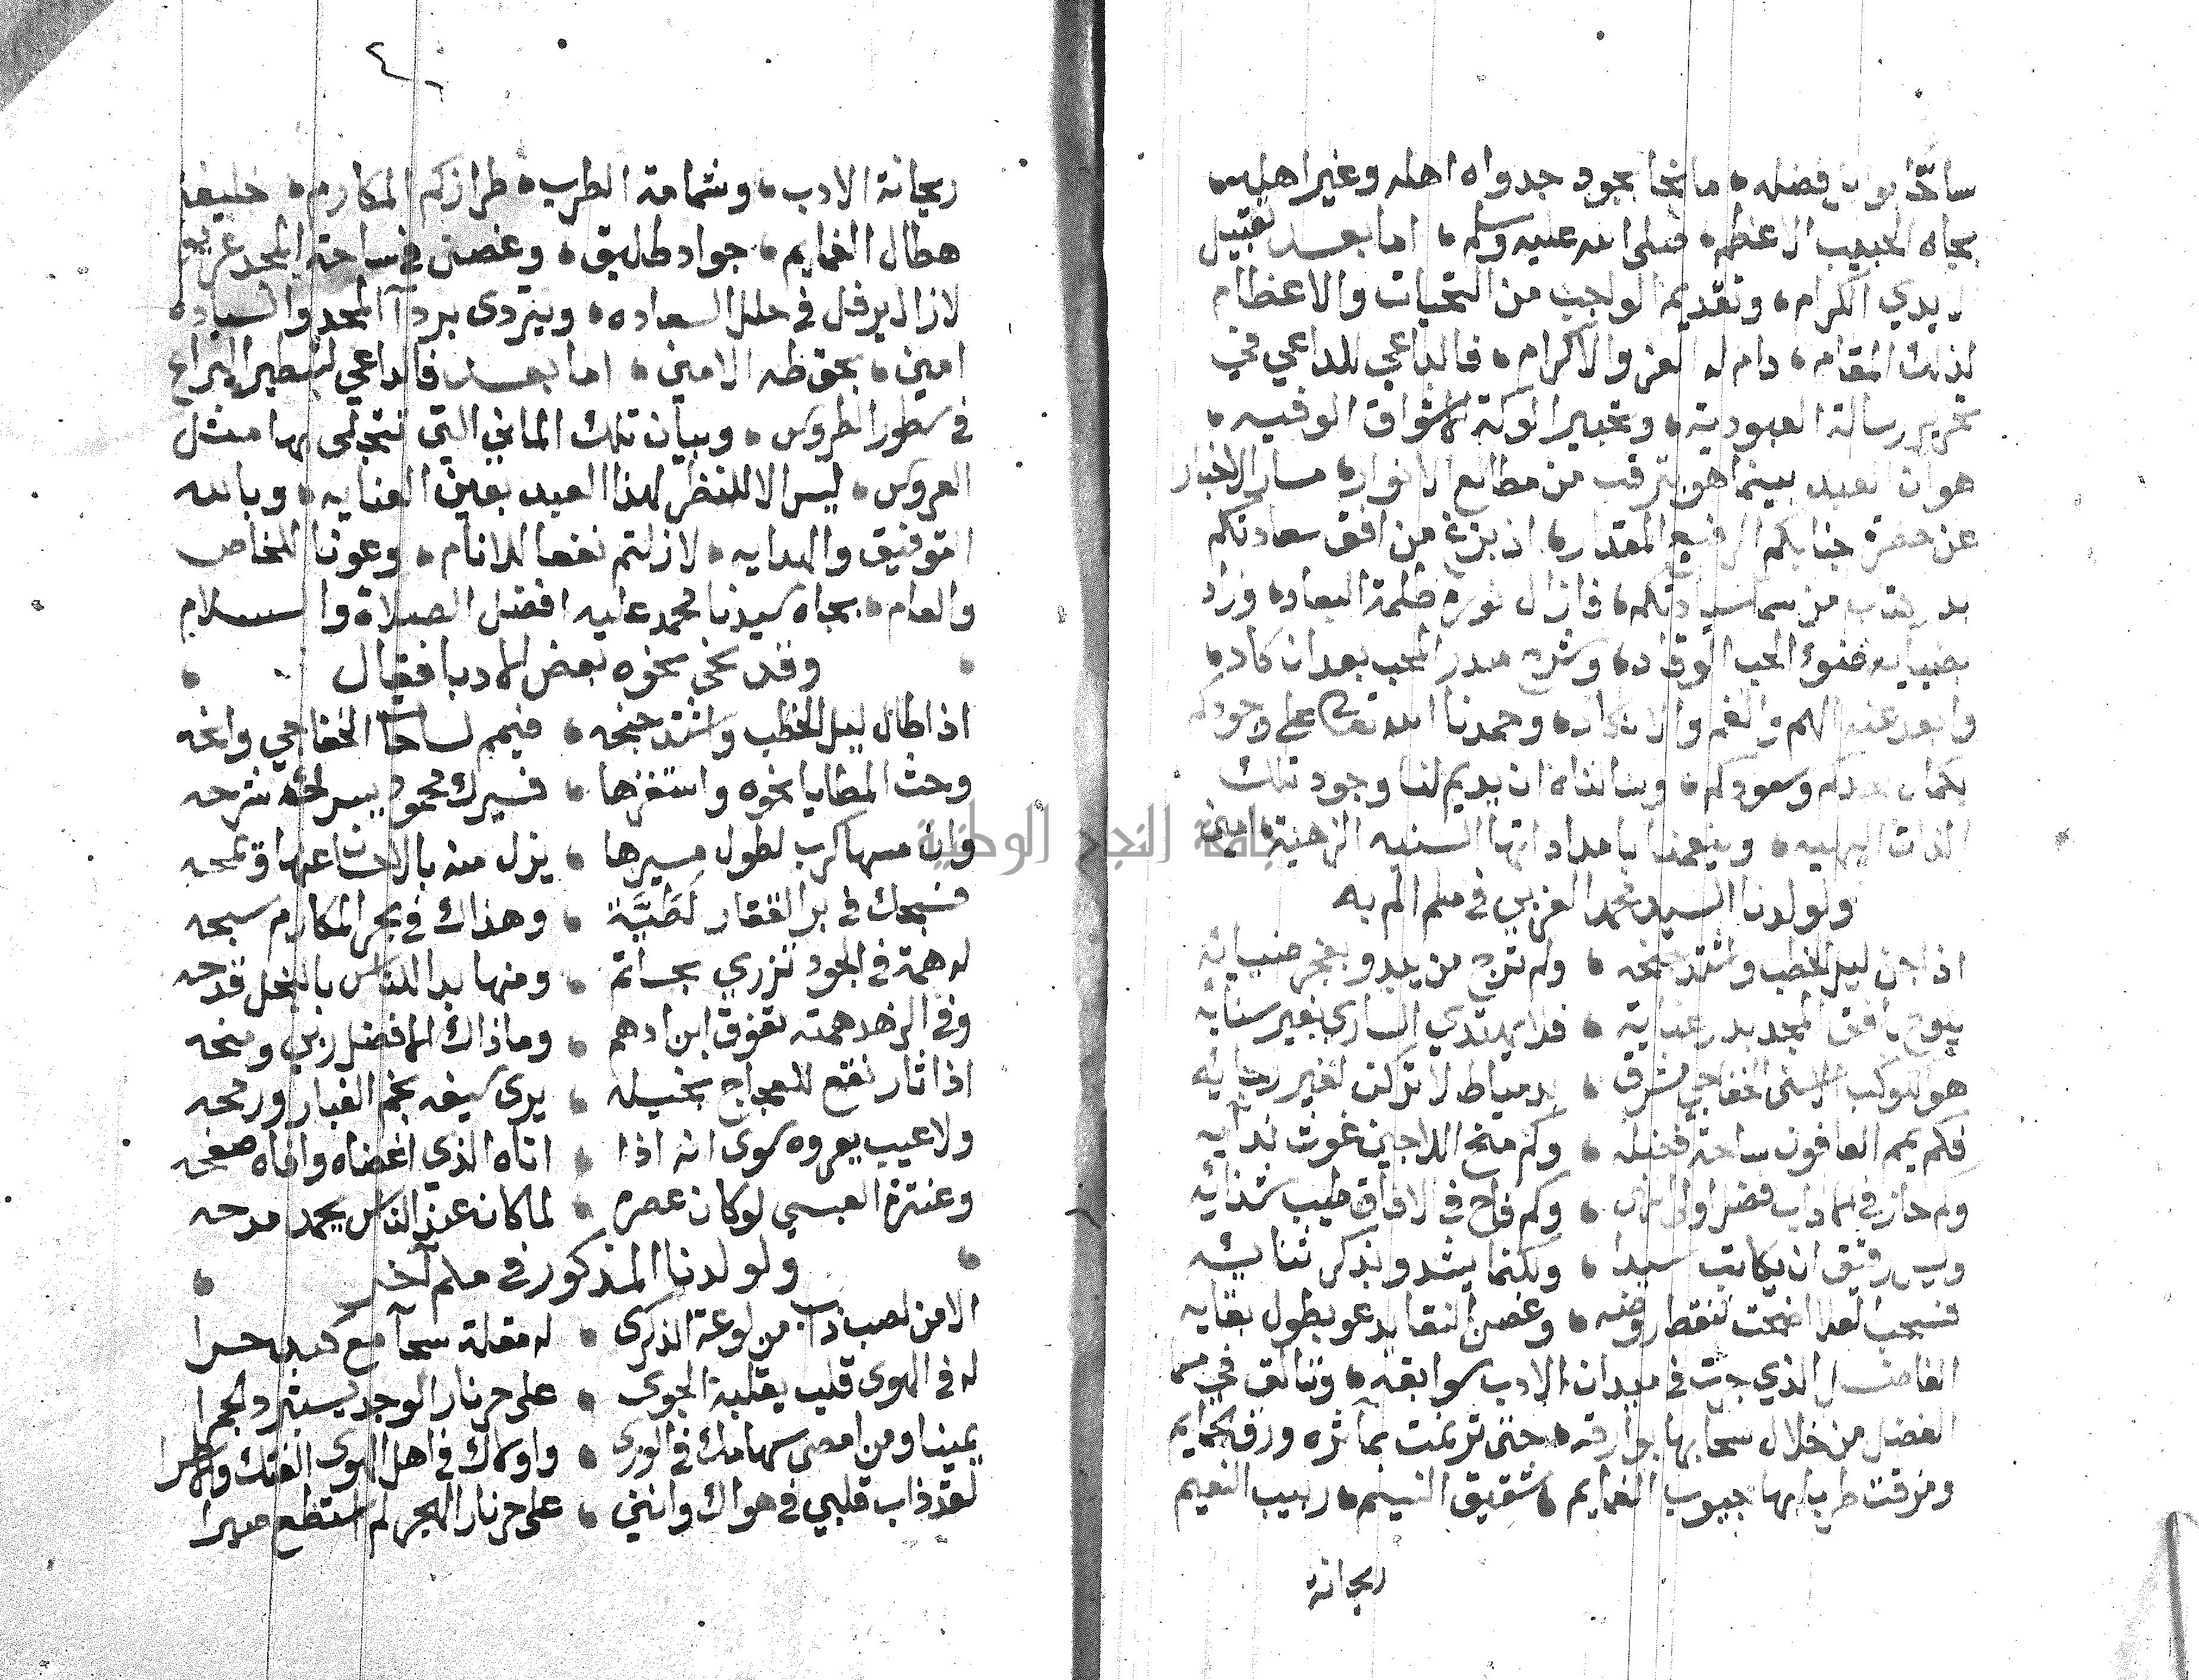 فضله ما نحا بجود جدواه اهله وغير اهليه
بجاه الحبيب الاعظم صلى الله عليه وسلم اما بعد تقبيل
ايدي الكرام وتقديم الواجب من التحيات والاعظام
لذلك المقام دام له العز والاكرام فالداعي للداعي في
تحرير رسالة العبودية وتحبير الوكة الاشواق الوفيه
هو ان العبد بينما هو يترقب من مطالع الانوار مسار الاخبار
عن حضرة جنابكم الرفيع المقدار اذ بزغ من افق سعادتكم
بدر كتاب من سما سيادتكم فازال نوره ظلمة البعاد وزاد
بضيايه ضوء الحب الوقاد وشرح صدر المحب بعد ان كاد
وابعد عنه الهم والغم والانكاد وحمدنا الله تعالى على وجودكم
بكمال سعدكم وسعودكم وسالناه ان يديم لنا وجود تلك
الذات البهيه وينعمنا بامداداتها السنيه الزهية امين
ولولدنا السيد محمد الغربي في ملم الم به
اذا جن ليل الخطب واشتد جنحه ولم ترج من يبدو بفجر ضيائه
يلوح بافق المجد بدر عناية فلا يهتدي الساري بغير سنايه
هو الكوكب الاسنى الخفاجي مشرق بدمياط لا تركن لغير رجايه
فكم يمم العافون ساحة فضله وكم منح اللاجين غوث ندايه
وكم حاز في الاداب فضل اولي النهى وكم فاح في الافاق طيب شذائه
وليس رقيق ان يكاتب سيدا ولكنما يشدو بذكر ثنائه
فسحب العلا اضحت لتقطر روضه وغصن النقا يدعو بطول بقايه
الفاضل الذي جرت في ميدان الادب سوابقه وتالق في سما
الفضل من خلال سحابها بوارقه حتى ترنمت بماثره ورق الحمايم
ومزقت طربا لها جيوب الغمايم شقيق النسيم ربيب النعيم
ريحانة
٤٦
ريحانة الادب وشمامة الطرب طراز كم المكارم خليفة
هطال الغمايم جواد طليق وغصن في ساحة المجد عريق
لازال يرفل في حلل السعاده ويتردى بردآ المجد والسياده
امين بحق طه الامين اما بعد فالداعي لتسطير اليراع
في سطور الطروس وبيان تلك المعاني التي تتجلى بها مثل
العروس ليس الا للنظر لهذا العبد بعين العنايه وبالله
التوفيق والهدايه لازلتم نفعا للانام وعونا للخاص
والعام بجاه سيدنا محمد عليه افضل الصلاة والسلام
وقد نحى نحوه بعض الادبا فقال
اذا طال ليل الخطب واشتد جنحه فيمم لساحات الخفاجي وانحه
وحث المطايا نحوه واستفزها فسيرك محمود بيسر لحته شرحه
وان مسها كرب لطول مسيرها يزل منه بالاحسان عنها وتمحه
فسبحك في بر القفار لطية وهذاك في بحر المكارم سبحه
له همة في الجود تزري بحاتم ومنها بدا للناس بالبخل قدحه
وفي الزهد همته تفوق ابن ادهم وما ذاك الا فضل ربي ومنحه
اذا ثار نقع للعجاج بخيله يرى سيفه نجم الغبار ورمحه
ولا عيب يعروه سوى انه اذا اتاه الذي اغضاه وافاه صفحه
وعنترة العبسي لو كان عصره لما كان عند الناس يحمد مدحه
ولولدنا المذكور في ملم آخر
الا من لصب ذاب من لوعة الذكرى له مقلة سحآ مع كبد حرا
له في الهوى قلب يقلبه الجوى على حر نار الوجد يستثرد الجمرا
يمينا ومن امضى سهامك في الورى واولاك في اهل الهوى الفتك والاسرا
لقد ذاب قلبي في هواك وانني على حر نار الهجر لم استطع صبرا
جامعة النجاح الوطنية